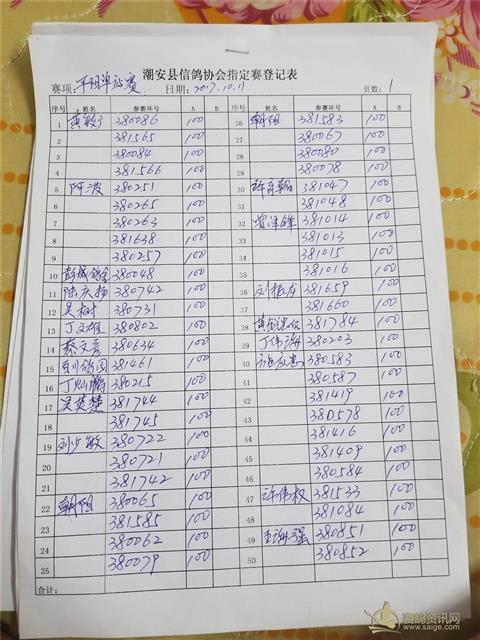 潮安县信鸽协会指定赛登记表
赛项: 平阳单站赛 日期: 2017.10.11 页数: 1
序号 姓名 参赛环号 A B 序号 姓名 参赛环号 A B
1 黄毅广 380086 100 26 朝阳 381583 100
2 381565 100 27 380067 100
3 380084 100 28 380080 100
4 381566 100 29 380078 100
5 阿波 380251 100 30 381047 100
6 380265 100 31 381048 100
7 380263 100 32 381014 100
8 381638 100 33 381013 100
9 380257 100 34 381015 100
10 380048 100 35 381016 100
11 陆庆扬 380742 100 36 381659 100
12 吴树 380731 100 37 381660 100
13 丁文雄 380802 100 38 381784 100
14 蔡文彦 380634 100 39 丁伟海 380203 100
15 381461 100 40 380583 100
16 丁灿鹏 380215 100 41 380587 100
17 吴英楚 381744 100 42 381419 100
18 381745 100 43 380578 100
19 刘少敏 380722 100 44 381416 100
20 380721 100 45 381409 100
21 381742 100 46 380584 100
22 朝阳 380065 100 47 许伟权 381533 100
23 381585 100 48 381084 100
24 380062 100 49 380851 100
25 380079 100 50 380852 100
合计:
赛鸽资讯网
www.saige.com